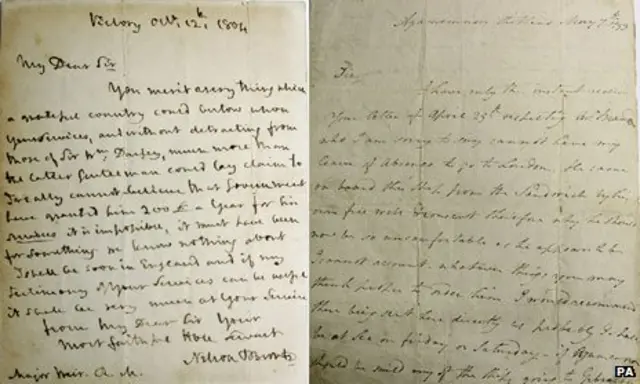 Victory Oct. 12th 1804
My Dear Sir
You merit everything which
a grateful country could bestow upon
your services, and without detracting from
those of Sir Wm. much more than
the latter Gentleman could lay claim to
I really cannot believe that Government
have granted him 200£ a Year for his
services it is impossible, it must have been
for something we know nothing about
I shall be soon in England and if my
testimony of Your Services can be useful
it shall be very much at Your Service
from My Dear Sir Your
most faithful Servant
Nelson & Bronte
Major A. M.
Agamemnon May 7th 93
Sir,
I have only this instant
Your letter of April 25th respecting
who I am sorry to say cannot have any
Leave of Absence to go to London. He came
on board this Ship from the Sandwich
own free will & consent therefore why he should
now be so uncomfortable as he appears to be
I cannot account. whatever things you may
think proper to him, I would recommend
their being sent here directly as probably I shall
be at Sea on friday or Saturday. if Agamemnon
any of the Ships going to
PA